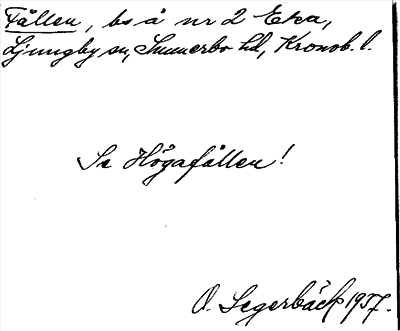 Fållen, bs å nr 2 Eka,
Ljungby sn, Sunnerbo hd, Kronob. l.
Se Högafållen!
O. Segerbäck 1937.